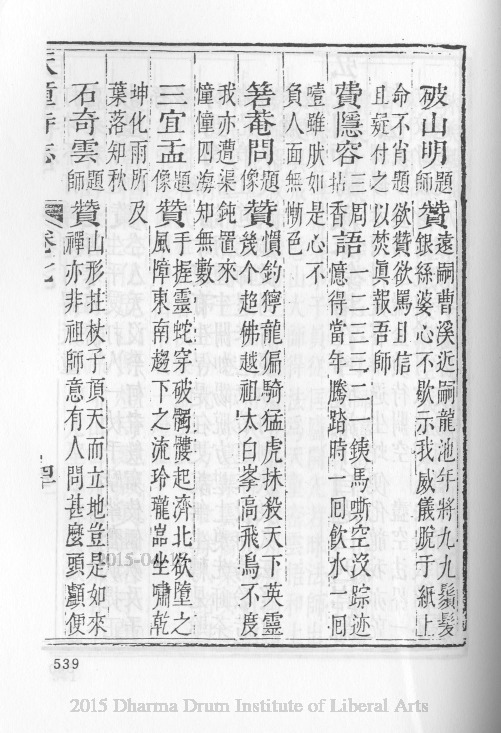 破山明題師贊
遠嗣曹溪近嗣龍池年將九九鬚髮
銀絲婆心不歇示我威儀脫于紙上
命不肖題欲贊欲罵且信
且疑付之以焚眞報吾師
費隱容三周拈香語
一二三三二一鐵馬嘶空沒踪迹
憶得當年騰踏時一回飲水一回
噎雖肰如是心不
負人面無慚色
箬菴問題像贊
慣釣獰龍偏騎猛虎抹殺天下英靈
幾个超佛越祖太白峯高飛鳥不度
我亦遭渠鈍置來
憧憧四海知無數
三宜盂題像贊
手握靈蛇穿破髑髏起濟北欲墮之
風障東南趨下之流玲瓏嵓坐嘯乾
坤化雨所及
葉落知秋
石奇雲題師贊
山形拄杖子頂天而立地豈是如來
禪亦非祖師意有人問甚麼頭顱便
天童寺志
卷七
539
2015 Dharma Drum Institute of Liberal Arts